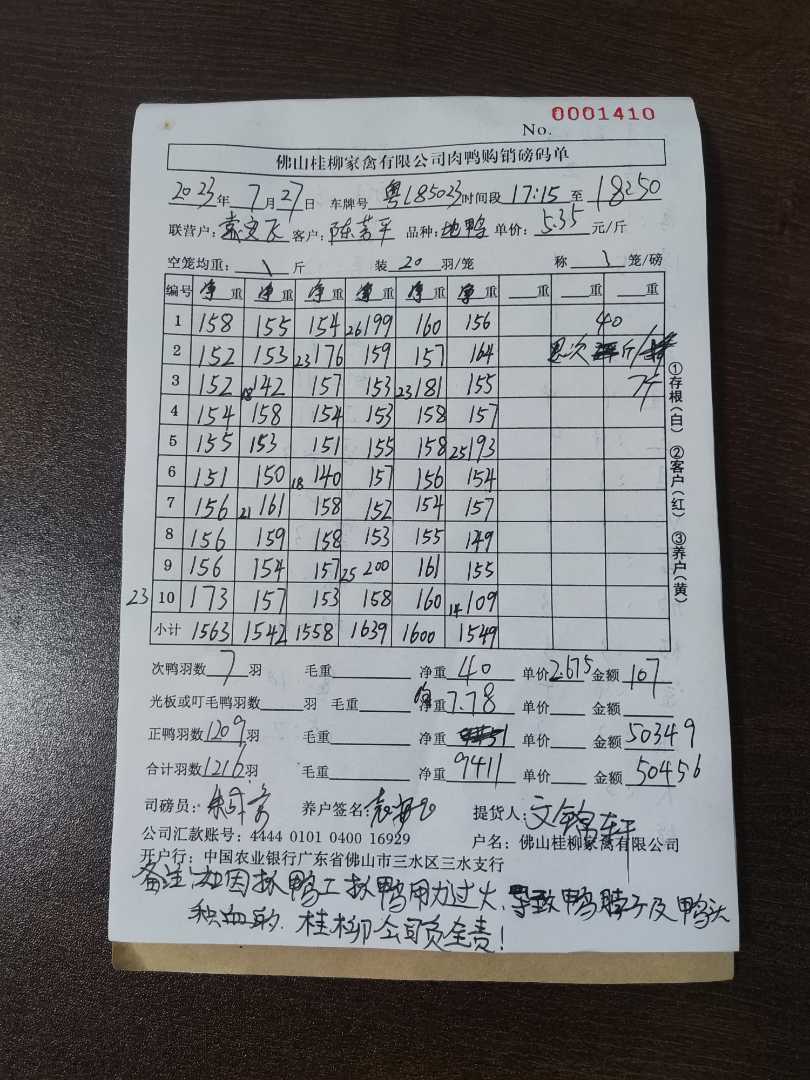 No. 0001410
佛山桂柳家禽有限公司肉鸭购销磅码单
2023年 7月27日 车牌号 粤L85023 时间段 17:15 至 18:50
联营户: 袁文飞 客户: 陈芳平 品种: 地鸭 单价: 5.35 元/斤
空笼均重: \ 斤 装 20 羽/笼 称 \ 笼/磅
编号 净重 净重 净重 净重 净重 净重 重 重 重
1 158 155 154 26 199 160 156 40
2 152 153 23 176 159 157 164 斤/
3 152 18 142 157 153 23 181 155 7斤
4 154 158 154 153 158 157
5 155 153 151 155 158 25 193
6 151 150 18 140 157 156 154
7 156 21 161 158 152 154 157
8 156 159 158 153 155 149
9 156 154 157 25 200 161 155
23 10 173 157 153 158 160 14 109
小计 1563 1542 1558 1639 1600 1549
①存根(白) ②客户(红) ③养户(黄)
次鸭羽数 7 羽 毛重 净重 40 单价 2.675 金额 107
光板或叮毛鸭羽数 羽 毛重 净重 7.78 单价 金额
正鸭羽数 1209 羽 毛重 净重 单价 金额 50349
合计羽数 1216 羽 毛重 净重 9411 单价 金额 50456
司磅员: 养户签名: 提货人: 文锦轩
公司汇款账号: 4444 0101 0400 16929 户名: 佛山桂柳家禽有限公司
开户行: 中国农业银行广东省佛山市三水区三水支行
备注: 如因抓鸭工抓鸭用力过火, 导致鸭脖子及鸭头
积血的. 桂柳公司负全责!